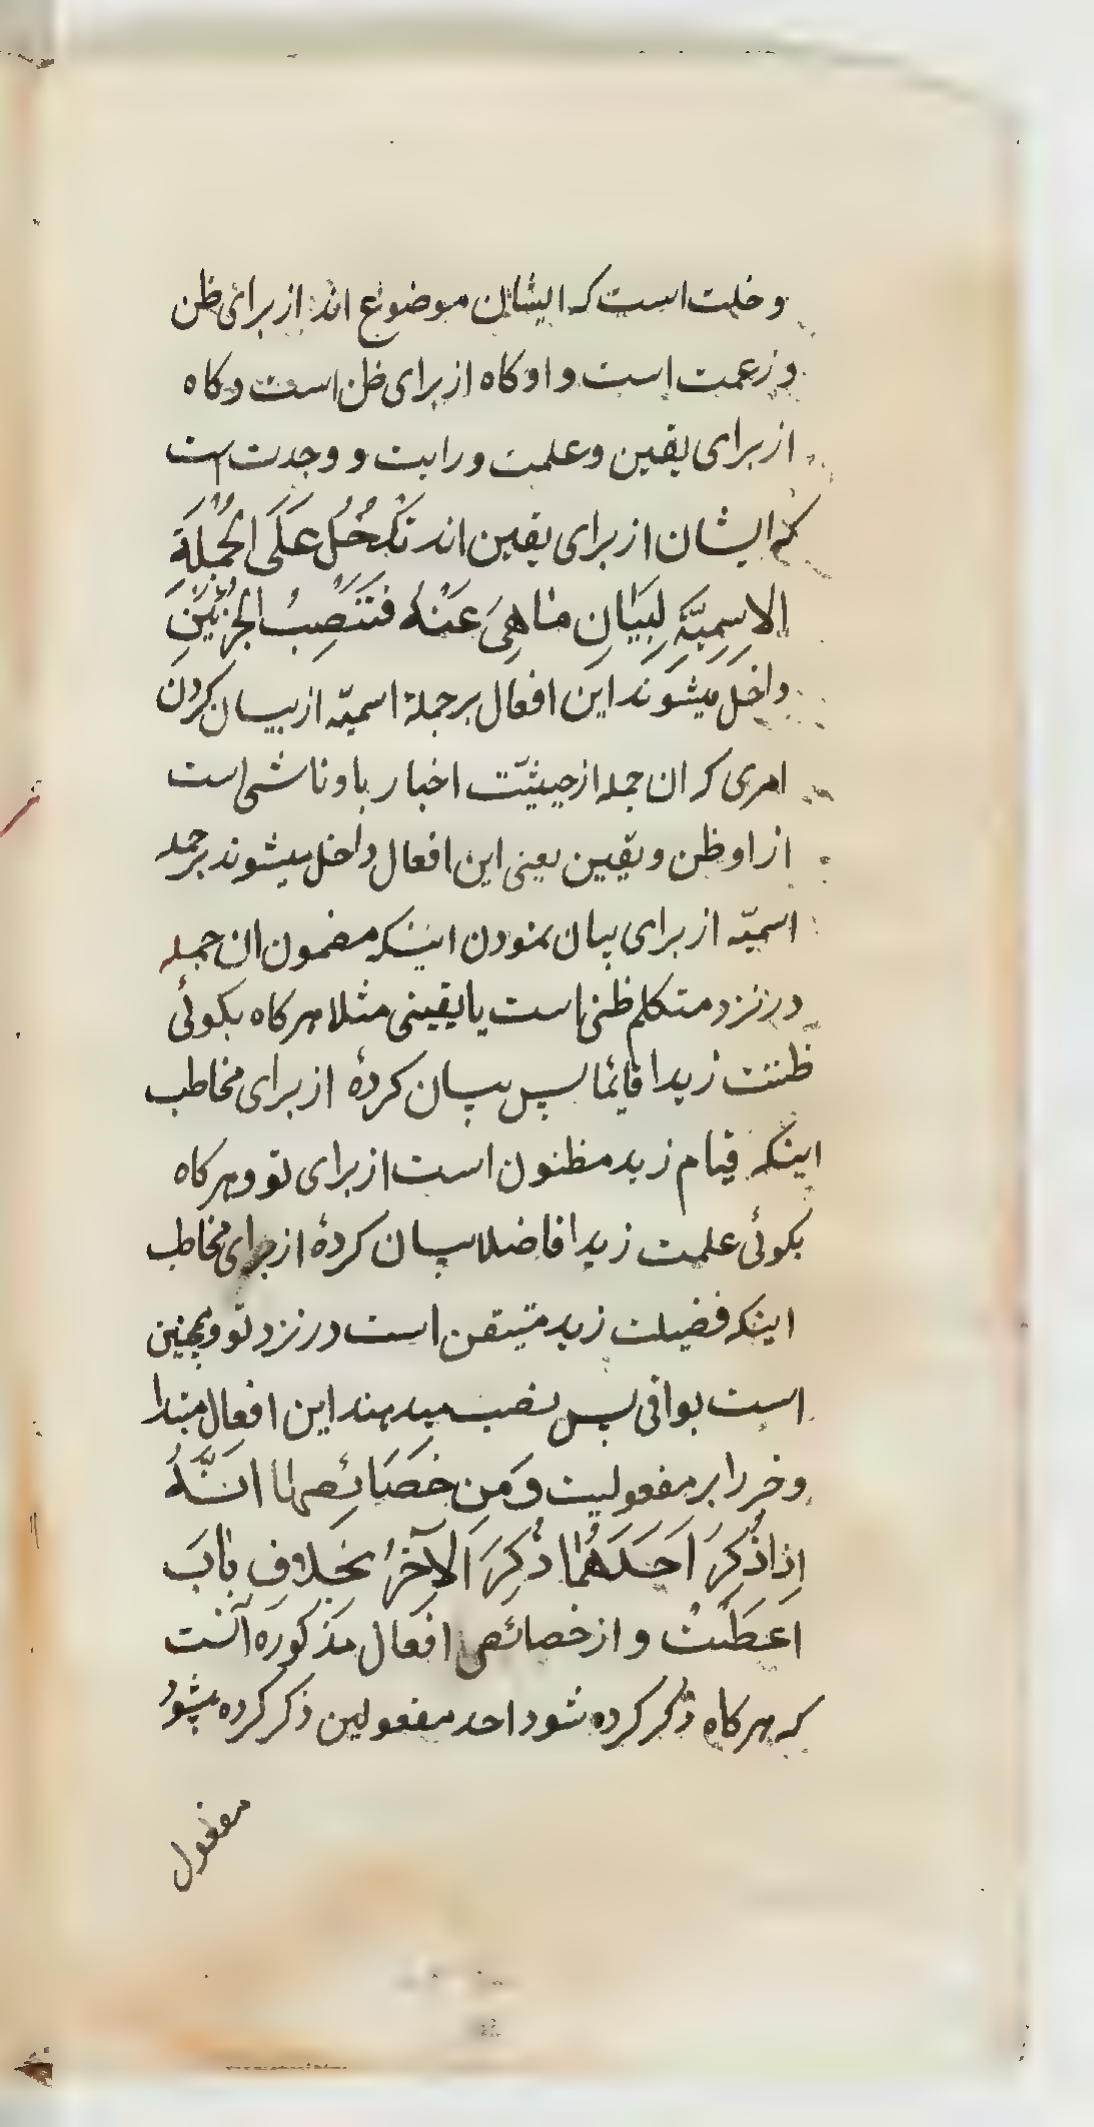 وخلت است که ایشان موضوع اند از برای ظن
و زعمت است و او کاه از برای ظن است و کاه
از برای یقین و علمت و رایت و وجدت است
که ایشان از برای یقین اند تَدْخُلُ عَلَی الجُمْلَةِ
الاِسمِیَّةِ لِبَیَانِ مٰا هِیَ عَنْهُ فَتَنْصِبُ الجُزْئَیْنِ
داخل میشوند این افعال بر جملهٔ اسمیّه از بیان کردن
امری که ان جمله از حیثیّت اخبار باو ناشی است
از او ظن و یقین یعنی این افعال داخل میشوند بر جمله
اسمیّه از برای بیان نمودن اینکه مضمون ان جمله
در نزد متکلم ظنی است یا یقینی مثلا هر کاه بکوئی
ظننت زیدا قائما پس بیان کردهٔ از برای مخاطب
اینکه قیام زید مظنون است از برای تو و هر کاه
بکوئی علمت زیدا فاضلا بیان کردهٔ از برای مخاطب
اینکه فضیلت زید متیقن است در نزد تو و همچنین
است بواقی پس نصب میدهند این افعال مبتدا
و خبر را بر مفعولیت وَ مِن خَصَائِصِهٰا اَنَّهُ
اِذٰا ذُکِرَ اَحَدَهُمٰا ذُکِرَ الآخَرُ بِخِلافِ بٰابَ
اَعطَیْتُ و از خصائص افعال مذکوره آنست
که هر کاه ذکر کرده شود احد مفعولین ذکر کرده میشود
مفعول